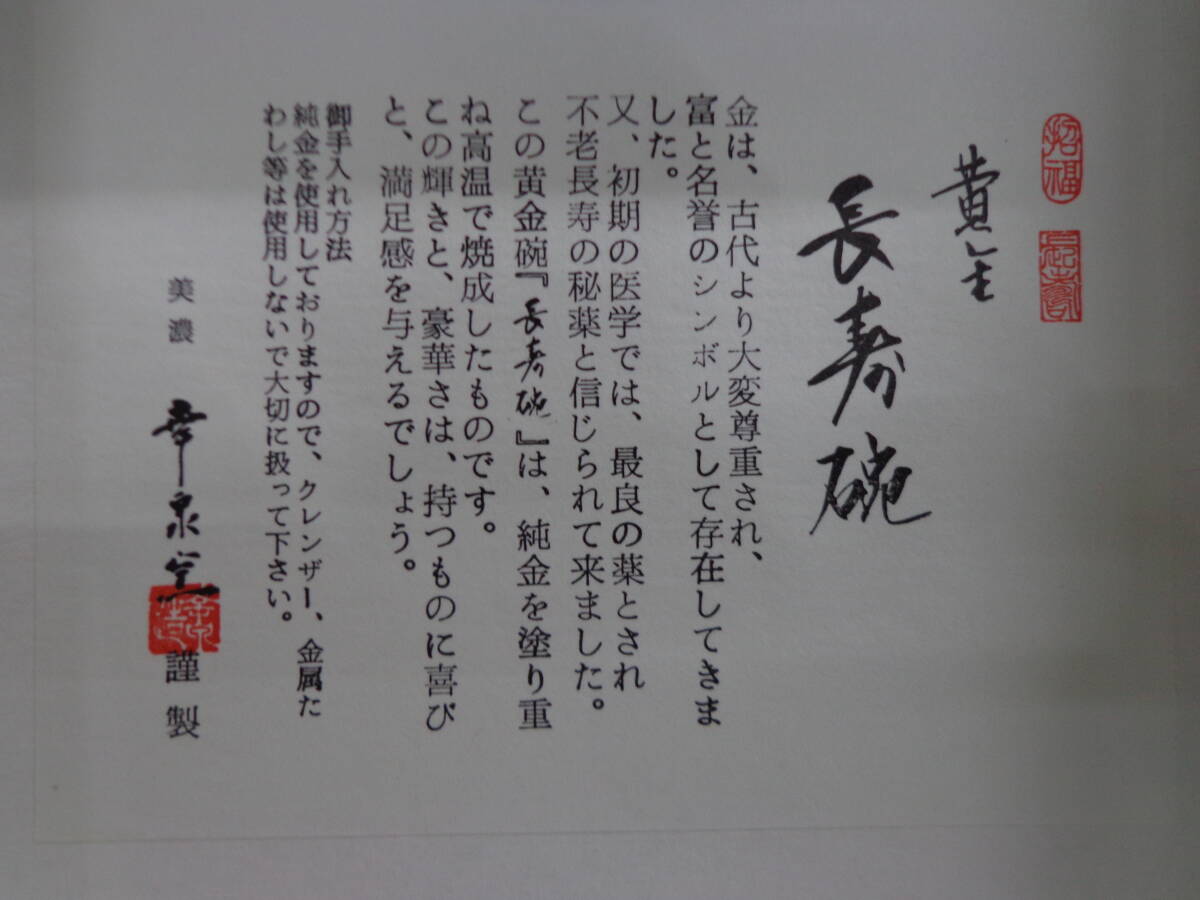 招福
長寿
黄金
長寿碗
金は、古代より大変尊重され、
富と名誉のシンボルとして存在してきま
した。
又、初期の医学では、最良の薬とされ
不老長寿の秘薬と信じられて来ました。
この黄金碗『長寿碗』は、純金を塗り重
ね高温で焼成したものです。
この輝きと、豪華さは、持つものに喜び
と、満足感を与えるでしょう。
御手入れ方法
純金を使用しておりますので、クレンザー、金属た
わし等は使用しないで大切に扱って下さい。
美濃 幸泉窯 謹製